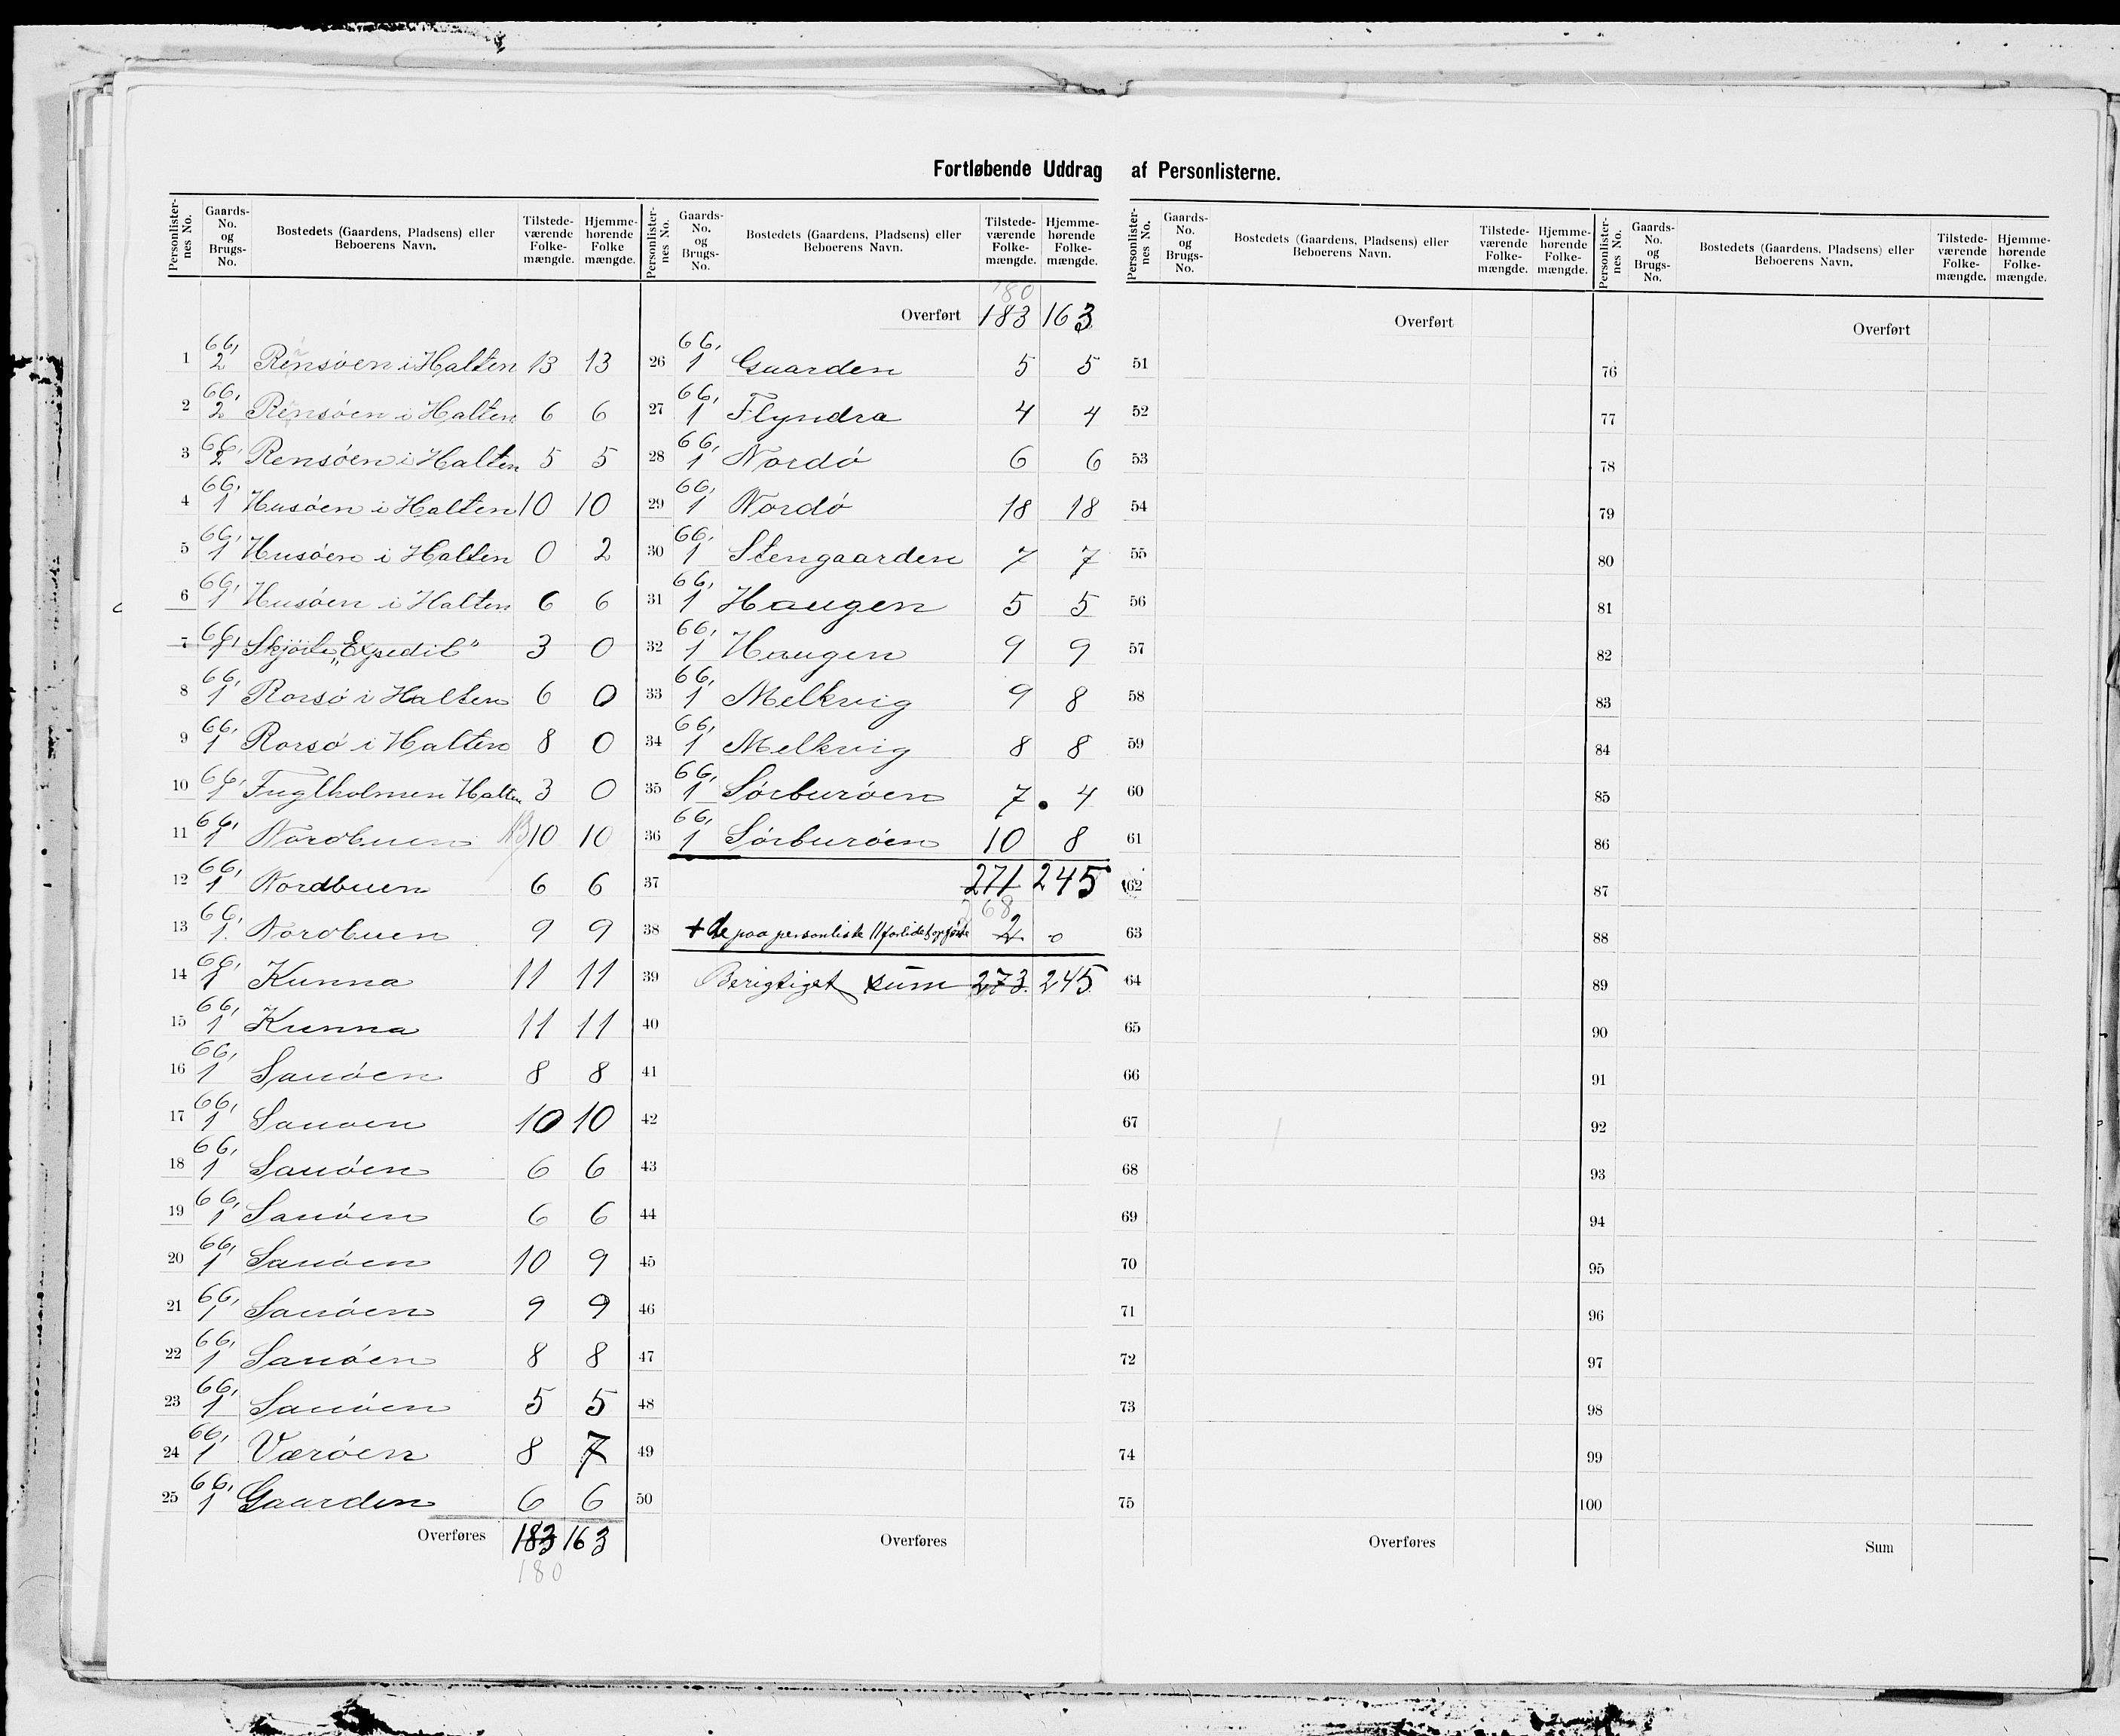 Fortløbende Uddrag af Personlisterne.
Personlisternes No. Gaards-No. og Brugs-No. Bostedets (Gaardens, Pladsens) eller Beboerens Navn. Tilstedeværende Folkemængde. Hjemmehørende Folkemængde.
1 66, 2 Rensöen i Halten 13 13
2 66, 2 Rensöen i Halten 6 6
3 66, 2 Rensöen i Halten 5 5
4 66, 1 Husöen i Halten 10 10
5 66, 1 Husöen i Halten 0 2
6 66, 1 Husöen i Halten 6 6
7 66, 1 Skjöite „Expedit" 3 0
8 66, 1 Rorsö i Halten 6 0
9 66, 1 Rorsö i Halten 8 0
10 66, 1 Fuglholmen Halten 3 0
11 66, 1 Nordbuen 10 10
12 66, 1 Nordbuen 6 6
13 66, 1 Nordbuen 9 9
14 66, 1 Kunna 11 11
15 66, 1 Kunna 11 11
16 66, 1 Sauöen 8 8
17 66, 1 Sauoen 10 10
18 66, 1 Sauöen 6 6
19 66, 1 Sauöen 6 6
20 66, 1 Sauöen 10 9
21 66, 1 Sauöen 9 9
22 66, 1 Sauöen 8 8
23 66, 1 Sauöen 5 5
24 66, 1 Væröen 8 7
25 66, 1 Gaarden 6 6
Overføres 183 163
180
Personlisternes No. Gaards-No. og Brugs-No. Bostedets (Gaardens, Pladsens) eller Beboerens Navn. Tilstedeværende Folkemængde. Hjemmehørende Folkemængde.
180
Overført 183 163
26 66, 1 Gaarden 5 5
27 66, 1 Flyndra 4 4
28 66, 1 Nordö 6 6
29 66, 1 Nordö 18 18
30 66, 1 Stengaarden 7 7
31 66, 1 Haugen 5 5
32 66, 1 Haugen 9 9
33 66, 1 Melkvig 9 8
34 66, 1 Melkvig 8 8
35 66, 1 Sörburöen 7 4
36 66, 1 Sörburöen 10 8
37 271 245
268
38 + de paa personliste 11 2 0
39 Berigtiget sum 273 245
40
41
42
43
44
45
46
47
48
49
50
Overføres
Personlisternes No. Gaards-No. og Brugs-No. Bostedets (Gaardens, Pladsens) eller Beboerens Navn. Tilstedeværende Folkemængde. Hjemmehørende Folkemængde.
Overført
51
52
53
54
55
56
57
58
59
60
61
62
63
64
65
66
67
68
69
70
71
72
73
74
75
Overføres
Personlisternes No. Gaards-No. og Brugs-No. Bostedets (Gaardens, Pladsens) eller Beboerens Navn. Tilstedeværende Folkemængde. Hjemmehørende Folkemængde.
Overført
76
77
78
79
80
81
82
83
84
85
86
87
88
89
90
91
92
93
94
95
96
97
98
99
100
Sum